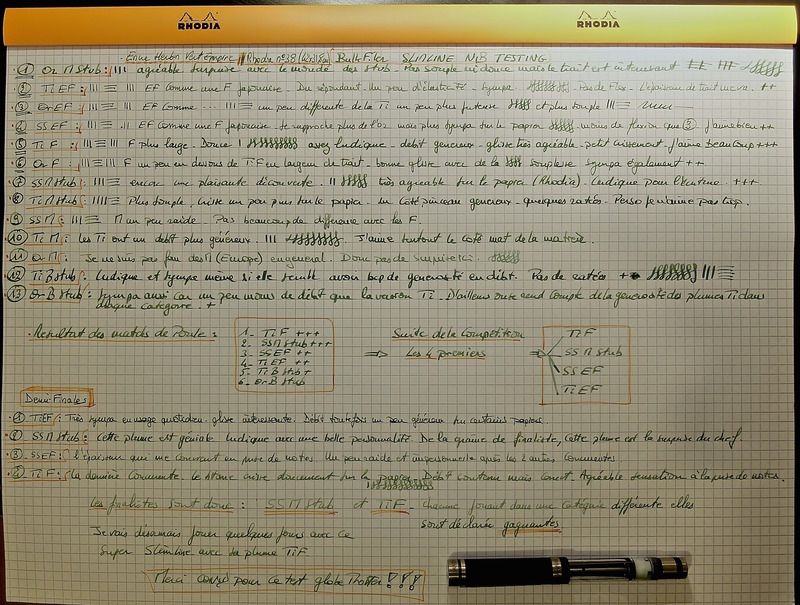 RHODIA
RHODIA
Encre Herbin Vert Empire // Rhodia n°38 BulkFiller SLIMLINE NIB TESTING
① Or M Stub : agréable surprise avec le monde des stub. Pas souple ni douce mais le trait est intéressant
② Ti EF : EF comme une F Japonaise. Du répondant. Un peu d'élasticité. Sympa. Pas de Flex. L'épaisseur de trait me va. ++
③ Or EF : EF comme ... un peu différente de la Ti un peu plus et plus souple
④ SS EF : EF comme une F Japonaise. se rapproche plus de l'or mais plus sympa sur le papier moins de flexion que ③ J'aime bien ++
⑤ Ti F : F plus large. Douce ! assez ludique - débit généreux - glisse très agréable. petit crissement. J'aime beaucoup +++
⑥ Or F : F un peu en dessous de Ti EF en largeur de trait - bonne glisse avec de la souplesse sympa également ++
⑦ SS M Stub : encore une plaisante découverte. très agréable sur le papier (Rhodia). Ludique pour l'écriture. +++
⑧ Ti M Stub : Plus souple, crisse un peu plus sur le papier. Un côté pinceau généreux - quelques ratées. Perso je n'aime pas trop.
⑨ SS M : M un peu raide. Pas beaucoup de différence avec les F.
⑩ Ti M : Les Ti ont un débit plus généreux. J'aime surtout le côté mat de la matière.
⑪ Or M : Je ne suis pas fan des M (Europe) en général. Donc pas de surprise ici.
⑫ Ti B Stub : Ludique et sympa même si elle semble avoir bcp de générosité en débit. Pas de ratées +
⑬ Or B Stub : Sympa aussi car un peu moins de débit que la version Ti. D'ailleurs on se rend compte de la générosité des plumes Ti dans chaque catégorie. +
Résultat des matchs de Poule :
1 - Ti F +++
2 - SS M Stub +++
3 - SS EF ++
4 - Ti EF ++
5 - Ti B Stub +
6 - Or B Stub
⇒ Suite de la Compétition
Les 4 premiers ⇒
Ti F
SS M Stub
SS EF
Ti EF
Demi-Finales
① Ti EF : Très sympa en usage quotidien - glisse intéressante. Débit toutefois un peu généreux sur certains papiers.
② SS M Stub : Cette plume est géniale ludique avec une belle personnalité. De la graine de finaliste, cette plume est la surprise du chef.
③ SS EF : l'épaisseur qui me convient en prise de notes. Un peu raide et impersonnelle après les 2 autres
Ti F : La dernière Le stone crisse doucement sur le papier Débit soutenu mais correct. Agréable sensation à la prise de notes.
Les finalistes sont donc : SS M Stub et Ti F - chacune jouant dans une catégorie différente elles
sont déclarées gagnantes
Je vais désormais jouer quelques jours avec ce
super Slimline avec sa plume Ti F
Merci pour ce test globe Trotter ! ! !